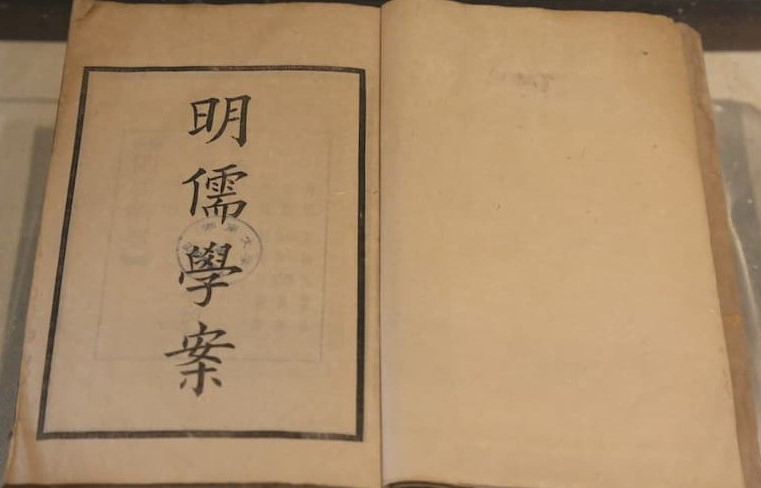 明儒學案